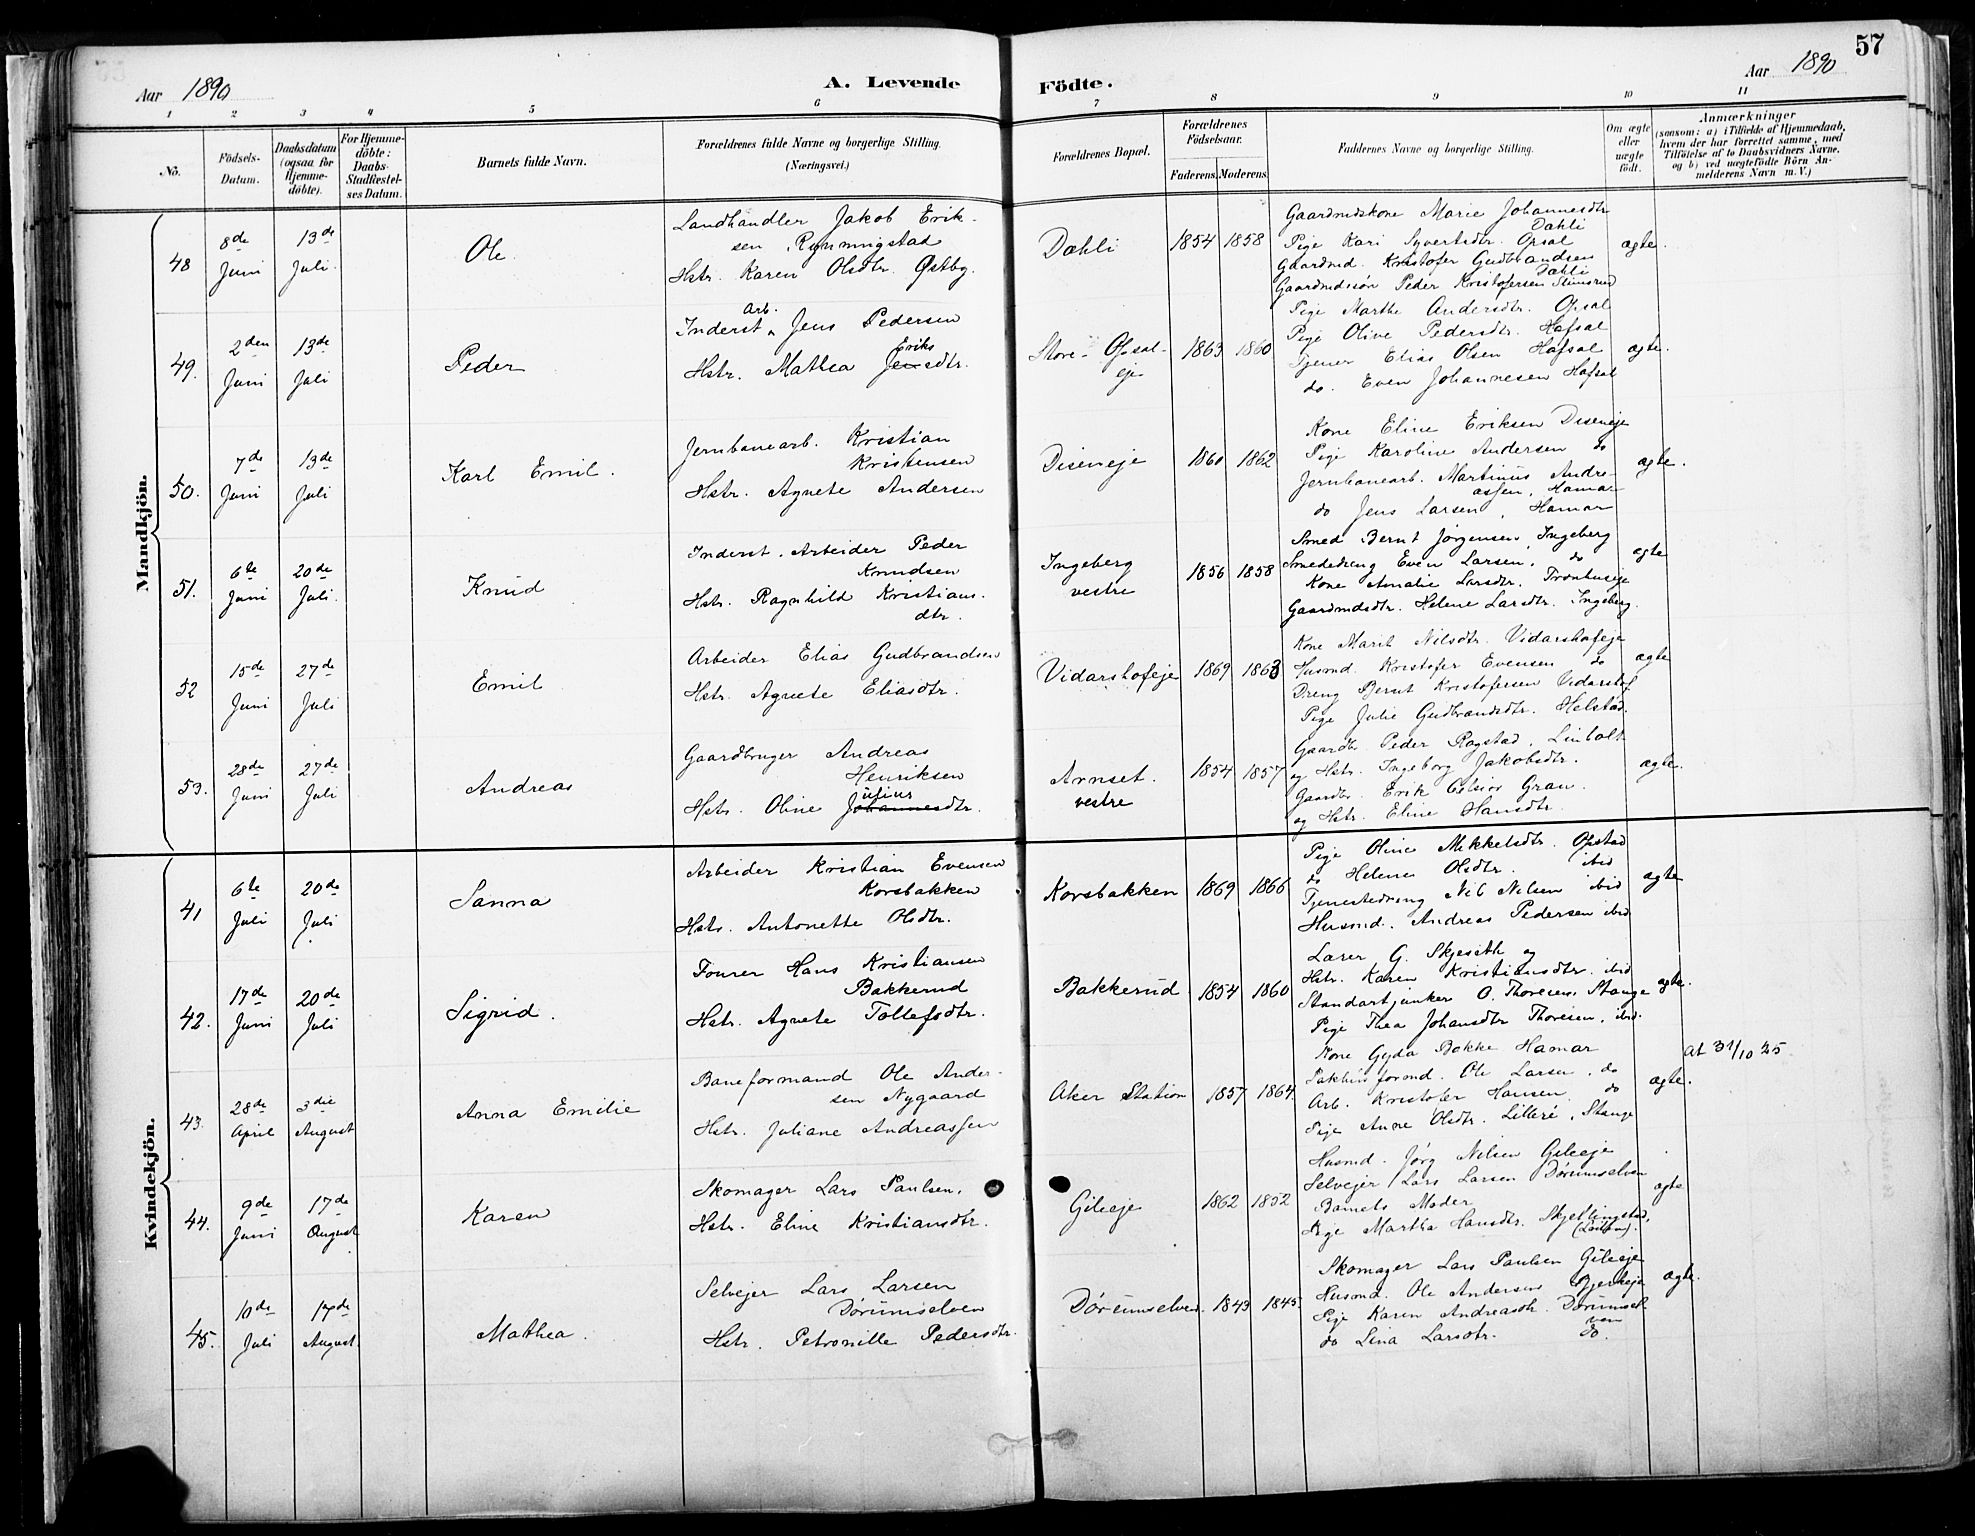 57
Aar 1890
A. Levende
Födte.
Aar 1890
1 2 3 4 5 6 7 8 9 10 11
No.
Födsels-
Datum.
Daabsdatum
(ogsaa for
Hjemme-
döbte).
For Hjemme-
döbte:
Daabs-
Stadfæstel-
ses Datum.
Barnets fulde Navn.
Forældrenes fulde Navne og borgerlige Stilling.
(Næringsvei.)
Forældrenes Bopæl.
Forældrenes
Födselsaar.
Faderens. Moderens.
Faddernes Navne og borgerlige Stilling.
Om ægte
eller
uægte
födt.
Anmærkninger
(saasom: a) i Tilfælde af Hjemmedaab,
hvem der har forrettet samme, med
Tilföielse af to Daabsvidners Navne.
og b) ved uægtefödte Börn An-
melderens Navn m. V.)
Mandkjön.
48
8de
Juni
13de
Juli.
Ole
Landhandler Jakob Erik-
sen, Rynningstad
Hstr. Karen Olsdtr. Østby.
Dæhli
1854 1858
Gaardmdskone Marie Johannesdtr
Dæhli
Pige Kari Syvertsdtr. Opsal
Gaardmd. Kristofer Gudbrandsen
Dæhli
Gaardmdssøn Peder Kristofersen Stensrud
ægte.
49.
2den
Juni
13de
Juli
Peder
Arb.
Inderst Jens Pedersen
Eriks
Hstr. Mathea Jensdtr.
Store-Opsal-
eje
1863 1860
Pige Marthe Andersdtr. Opsal
Pige Oline Pedersdtr. Hafsal
Tjener Elias Olsen Hafsal
do. Even Johannesen Hafsal
ægte.
50.
7de
Juni
13de
Juli
Karl Emil.
Jernbanearb. Kristian
Kristensen
Hstr. Agnete Andersen
Diseneje
1860 1862
Kone Eline Eriksen Diseneje
Pige Karoline Andersen do
Jernbanearb. Martinus Andre-
assen, Hamar
do Jens Larsen, Hamar
ægte.
51.
6te
Juni
20de
Juli.
Knud
Inderst. Arbeider Peder
Knudsen
Hstr. Ragnhild Kristians-
dtr.
Ingeberg
vestre
1856 1858
Smed Bernt Jørgensen, Ingeberg
Smededreng Even Larsen, do
Kone Amalie Larsdtr. Tronhuseje
Gaardmdsdtr. Helene Larsdtr. Ingeberg.
ægte
52
15de
Juni
27de
Juli
Emil
Arbeider Elias Gudbrandsen
Hstr. Agnete Eliasdtr.
Vidarshofeje
1869 1863
Kone Marit Nilsdtr. Vidarshofeje
Husmd. Kristofer Evensen do
Dreng Bernt Kristofersen Vidarshof
Pige Julie Gudbrandsdtr. Helstad.
ægte
53.
28de
Juni
27de
Juli
Andreas
Gaardbruger Andreas
Henriksen
ulius
Hstr. Oline Johannesdtr.
Arnset.
vestre
1854 1857
Gaardbr. Peder Rogstad,
og Hstr. Ingeborg Jakobsdtr.
Gaardbr. Erik Celius Grau.
og Hstr. Eline Hansdtr.
ægte.
Kvindekjön.
41
6te
Juli
20de
Juli
Sanna
Arbeider Kristian Evensen
Korsbakken
Hstr. Antonette Olsdtr.
Korsbakken
1869 1866
Pige Oline Mikkelsdtr. Opstad
do Helene Olsdtr. ibid
Tjenestedreng Nils Nilsen ibid
Husmd. Andreas Pedersen ibid
ægte
42.
17de
Juni
20de
Juli
Sigrid.
Fourer Hans Kristiansen
Bakkerud
Hstr. Agnete Tollefsdtr.
Bakkerud
1854 1860
Lærer G. Skjeseth og
Hstr. Karen Kristiansdtr. ibid
Standartjunker O. Thoresen, Stange
Pige Thea Johansdtr Thoresen, ibid.
ægte.
43.
28de
April
3die
August
Anna Emilie
Baneformand Ole Ander-
sen Nygaard
Hstr. Juliane Andreassen
Aker Station
1857 1864
Kone Gyda Bakke Hamar
Pakhusformd. Ole Larsen, do
Arb. Kristofer Hansen, do
Pige Anne Olsdtr. Lillerë, Stange
ægte.
at 31/10 25
44.
9de
Juni
17de
August
Karen
Skomager Lars Paulsen,
Hstr. Eline Kristiansdtr.
Gileeje
1862 1852
Husmd. Jørg Nilsen Gileeje
Selvejer Lars Larsen Dørumselven
Barnets Moder
Pige Martha Hansdtr. Skjellingstad,
ægte
45.
10de
Juli
17de
August.
Mathea.
Selvejer Lars Larsen
Dørumselven
Hstr. Petronille Pedersdtr.
Dørumselven.
1843 1845.
Skomager Lars Paulsen Gileeje
Husmd. Ole Andersen Bjerkeeje
Pige Karen Andreasdtr. Dørumsel-
ven
do Lina Larsdtr. do.
ægte.